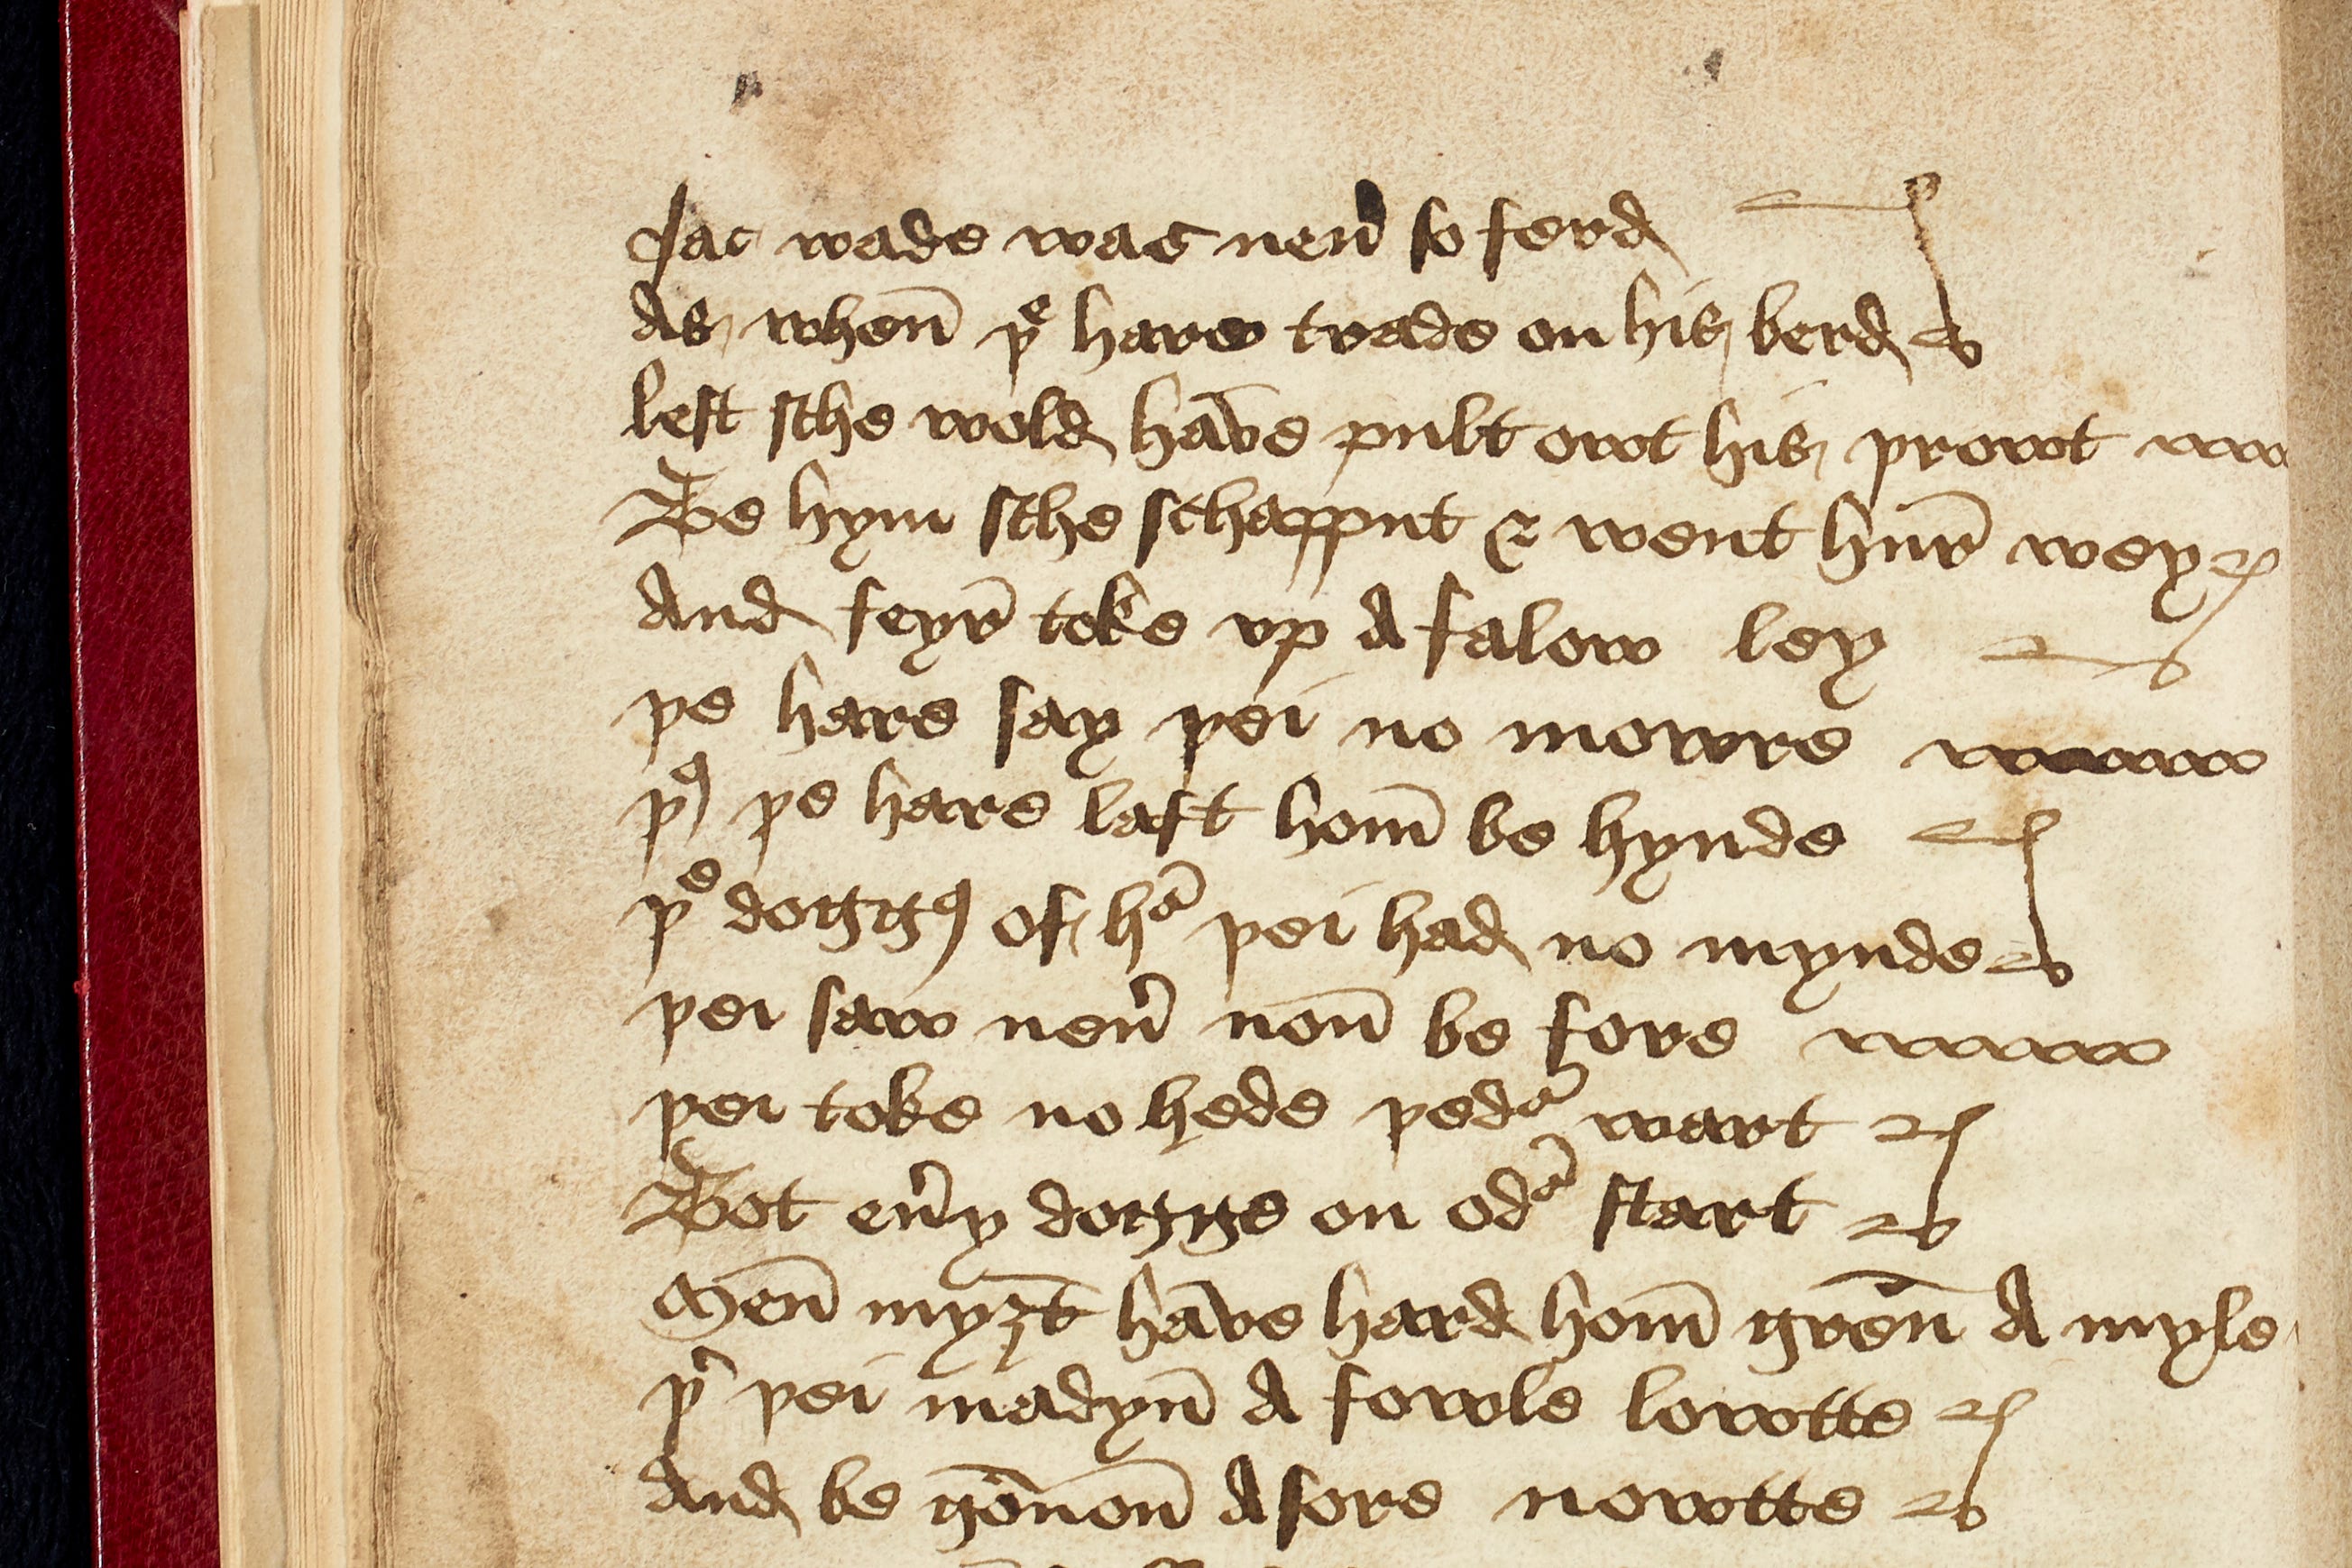 Jac wade was neũ so ferd
As when̄ þͤ hare trade on his berd
lest sche wold hāve pult owt his þrowt
Be hym sche schapput & went hur̄ wey
And feyr̄ toke vp A falow ley
þe hare say þei no mowre
þꝰ þe hare laft hom̄ be hynde
þͤ doggꝰ of hᵃ þei had no mynde
þei saw neũ non̄ be fore
þei toke no hede þedᵃ wart
Bot eũy dogge on odᵃ start
Men̄ myȝt hāve hard hom̄ gren̄ A myle
þʳ þei madyn̄ A fowle lowtte
And be gōnon̄ A sore nowtte